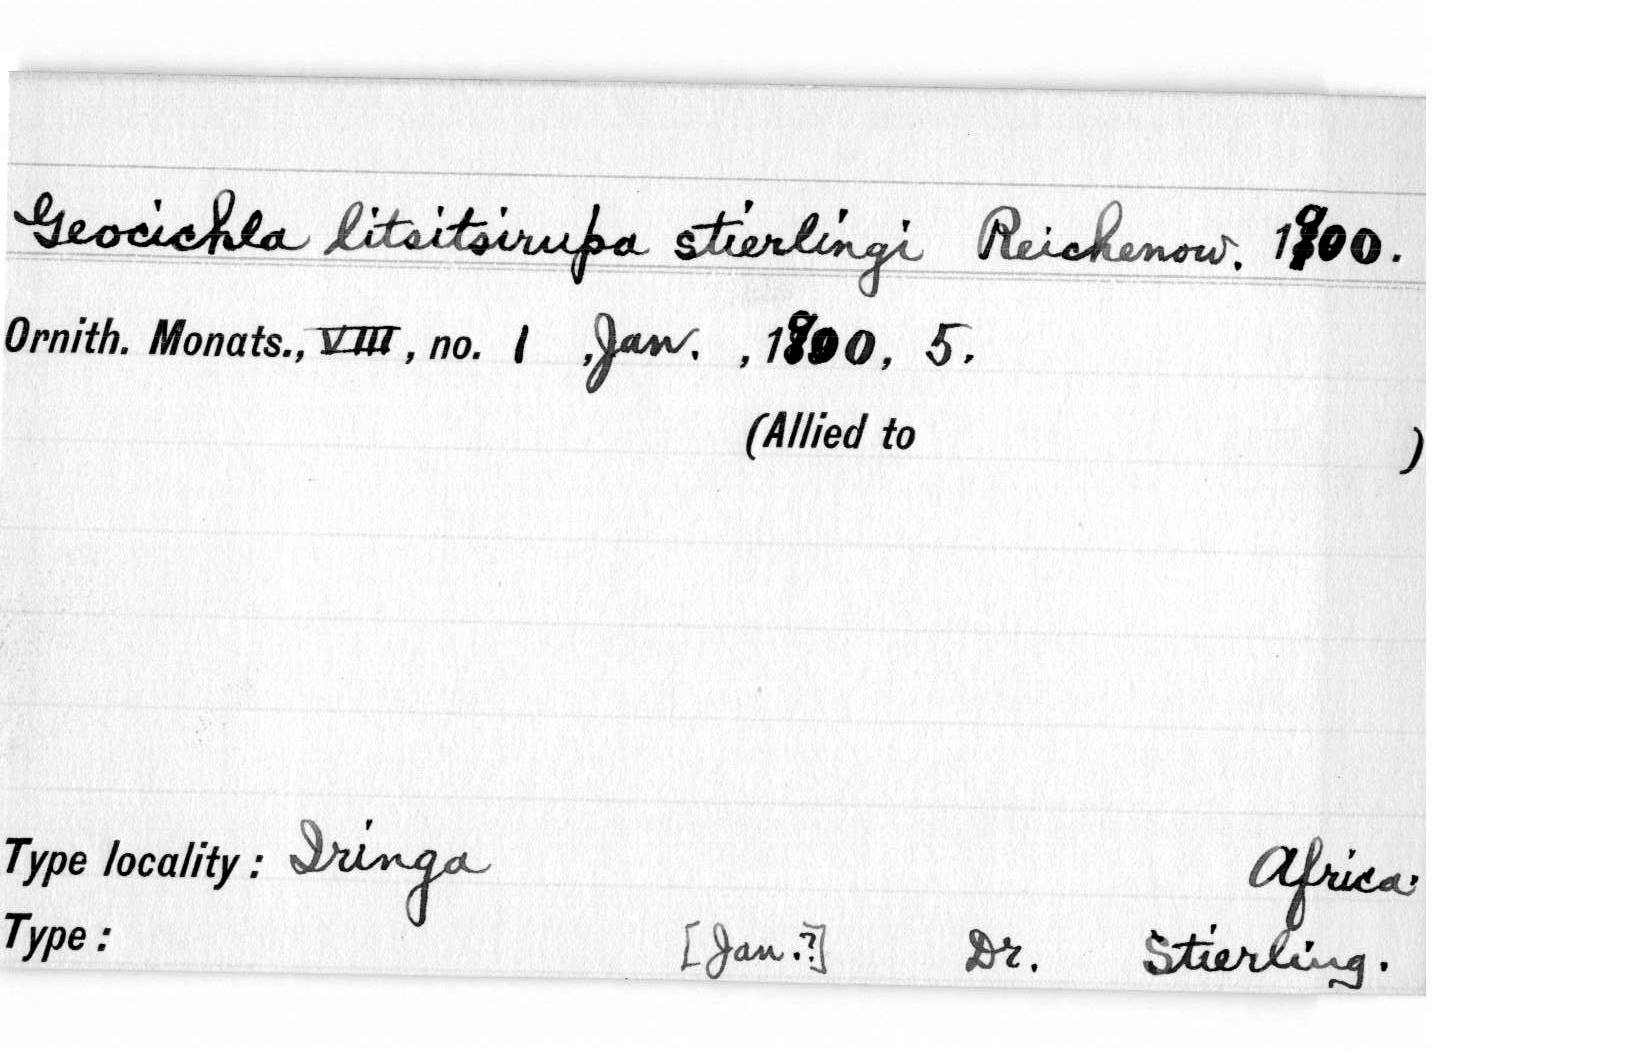 Geocichla litsitsirupa stierlingi Reichenow. 1900.
Ornith. Monats., VIII, no. 1 , Jan. , 1900, 5.
(Allied to )
Type locality: Iringa Africa.
Type: [Jan.?] Dr. Stierling.